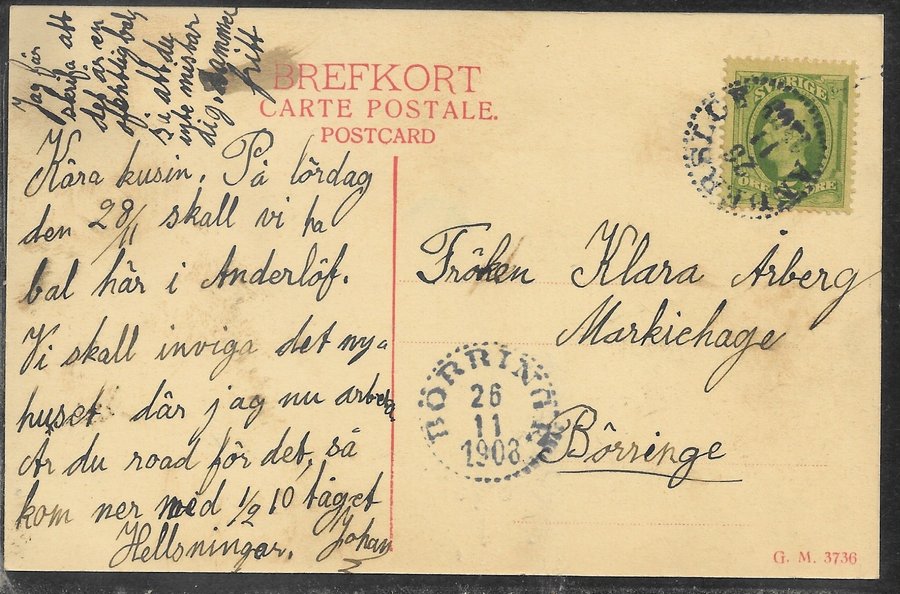 Jag får
skrifa att
det är en
offentlig bal
så att du
inte misstar
dig, kammer
fritt
BREFKORT
CARTE POSTALE.
POSTCARD
Kära kusin. På lördag
den 28/11 skall vi ha
bal här i Anderlöf.
Vi skall inviga det nya
huset där jag nu arbeta
Är du road för det, så
kom ner med 1/2 10 tåget
Hellsningar. Johan
SVERIGE
ÖRE ÖRE
ANDERSLÖF
Fröken Klara Arberg
Markiehage
Börringe
BÖRRINGE
26
11
1908
G. M. 3736